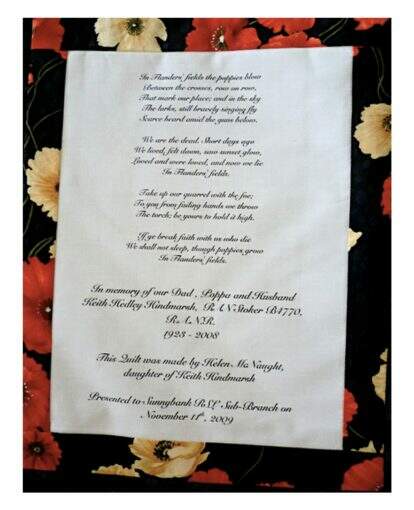 In Flanders' fields the poppies blow
Between the crosses, row on row,
That mark our place; and in the sky
The larks, still bravely singing fly
Scarce heard amid the guns below.
We are the dead. Short days ago
We lived, felt dawn, saw sunset glow,
Loved and were loved, and now we lie
In Flanders' fields.
Take up our quarrel with the foe;
To you from failing hands we throw
The torch; be yours to hold it high.
If ye break faith with us who die
We shall not sleep, though poppies grow
In Flanders' fields.
In memory of our Dad , Poppa and Husband
Keith Hedley Hindmarsh, RAN Stoker B4770,
R.A.N.R.
1923 - 2008
This Quilt was made by Helen McNaught,
daughter of Keith Hindmarsh
Presented to Sunnybank RSL Sub-Branch on
November 11th, 2009